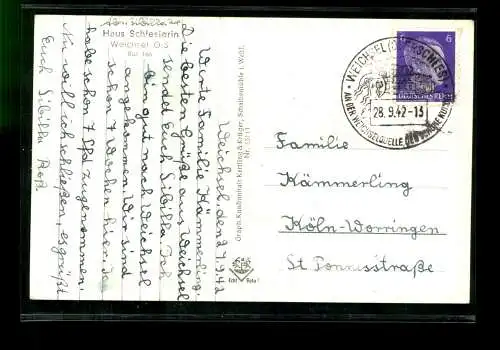 Abs. Sibilla
Haus Schlesierin
Weichsel O/S
Weichsel, den 27.9.42
Werte Familie Kämmerling,
Die besten Grüße aus Weichsel
sendet Euch Sibilla. Ich
bin gut nach Weichsel
angekommen. Wir sind
schon 7 Wochen hier. Ich
habe schon 7 Pfd zugenommen.
Nu will ich schließen, es grüßt
Euch Sibilla
Graph. Kunstanstalt Kettling & Krüger, Schalksmühle i. Westf.
Echt Foto!
WEICHSEL (OBERSCHLES)
28.9.42-13
AN DER WEICHSELQUELLE
6
DEUTSCHES REICH
Familie
Kämmerling
Köln-Worringen
St Tönnisstraße